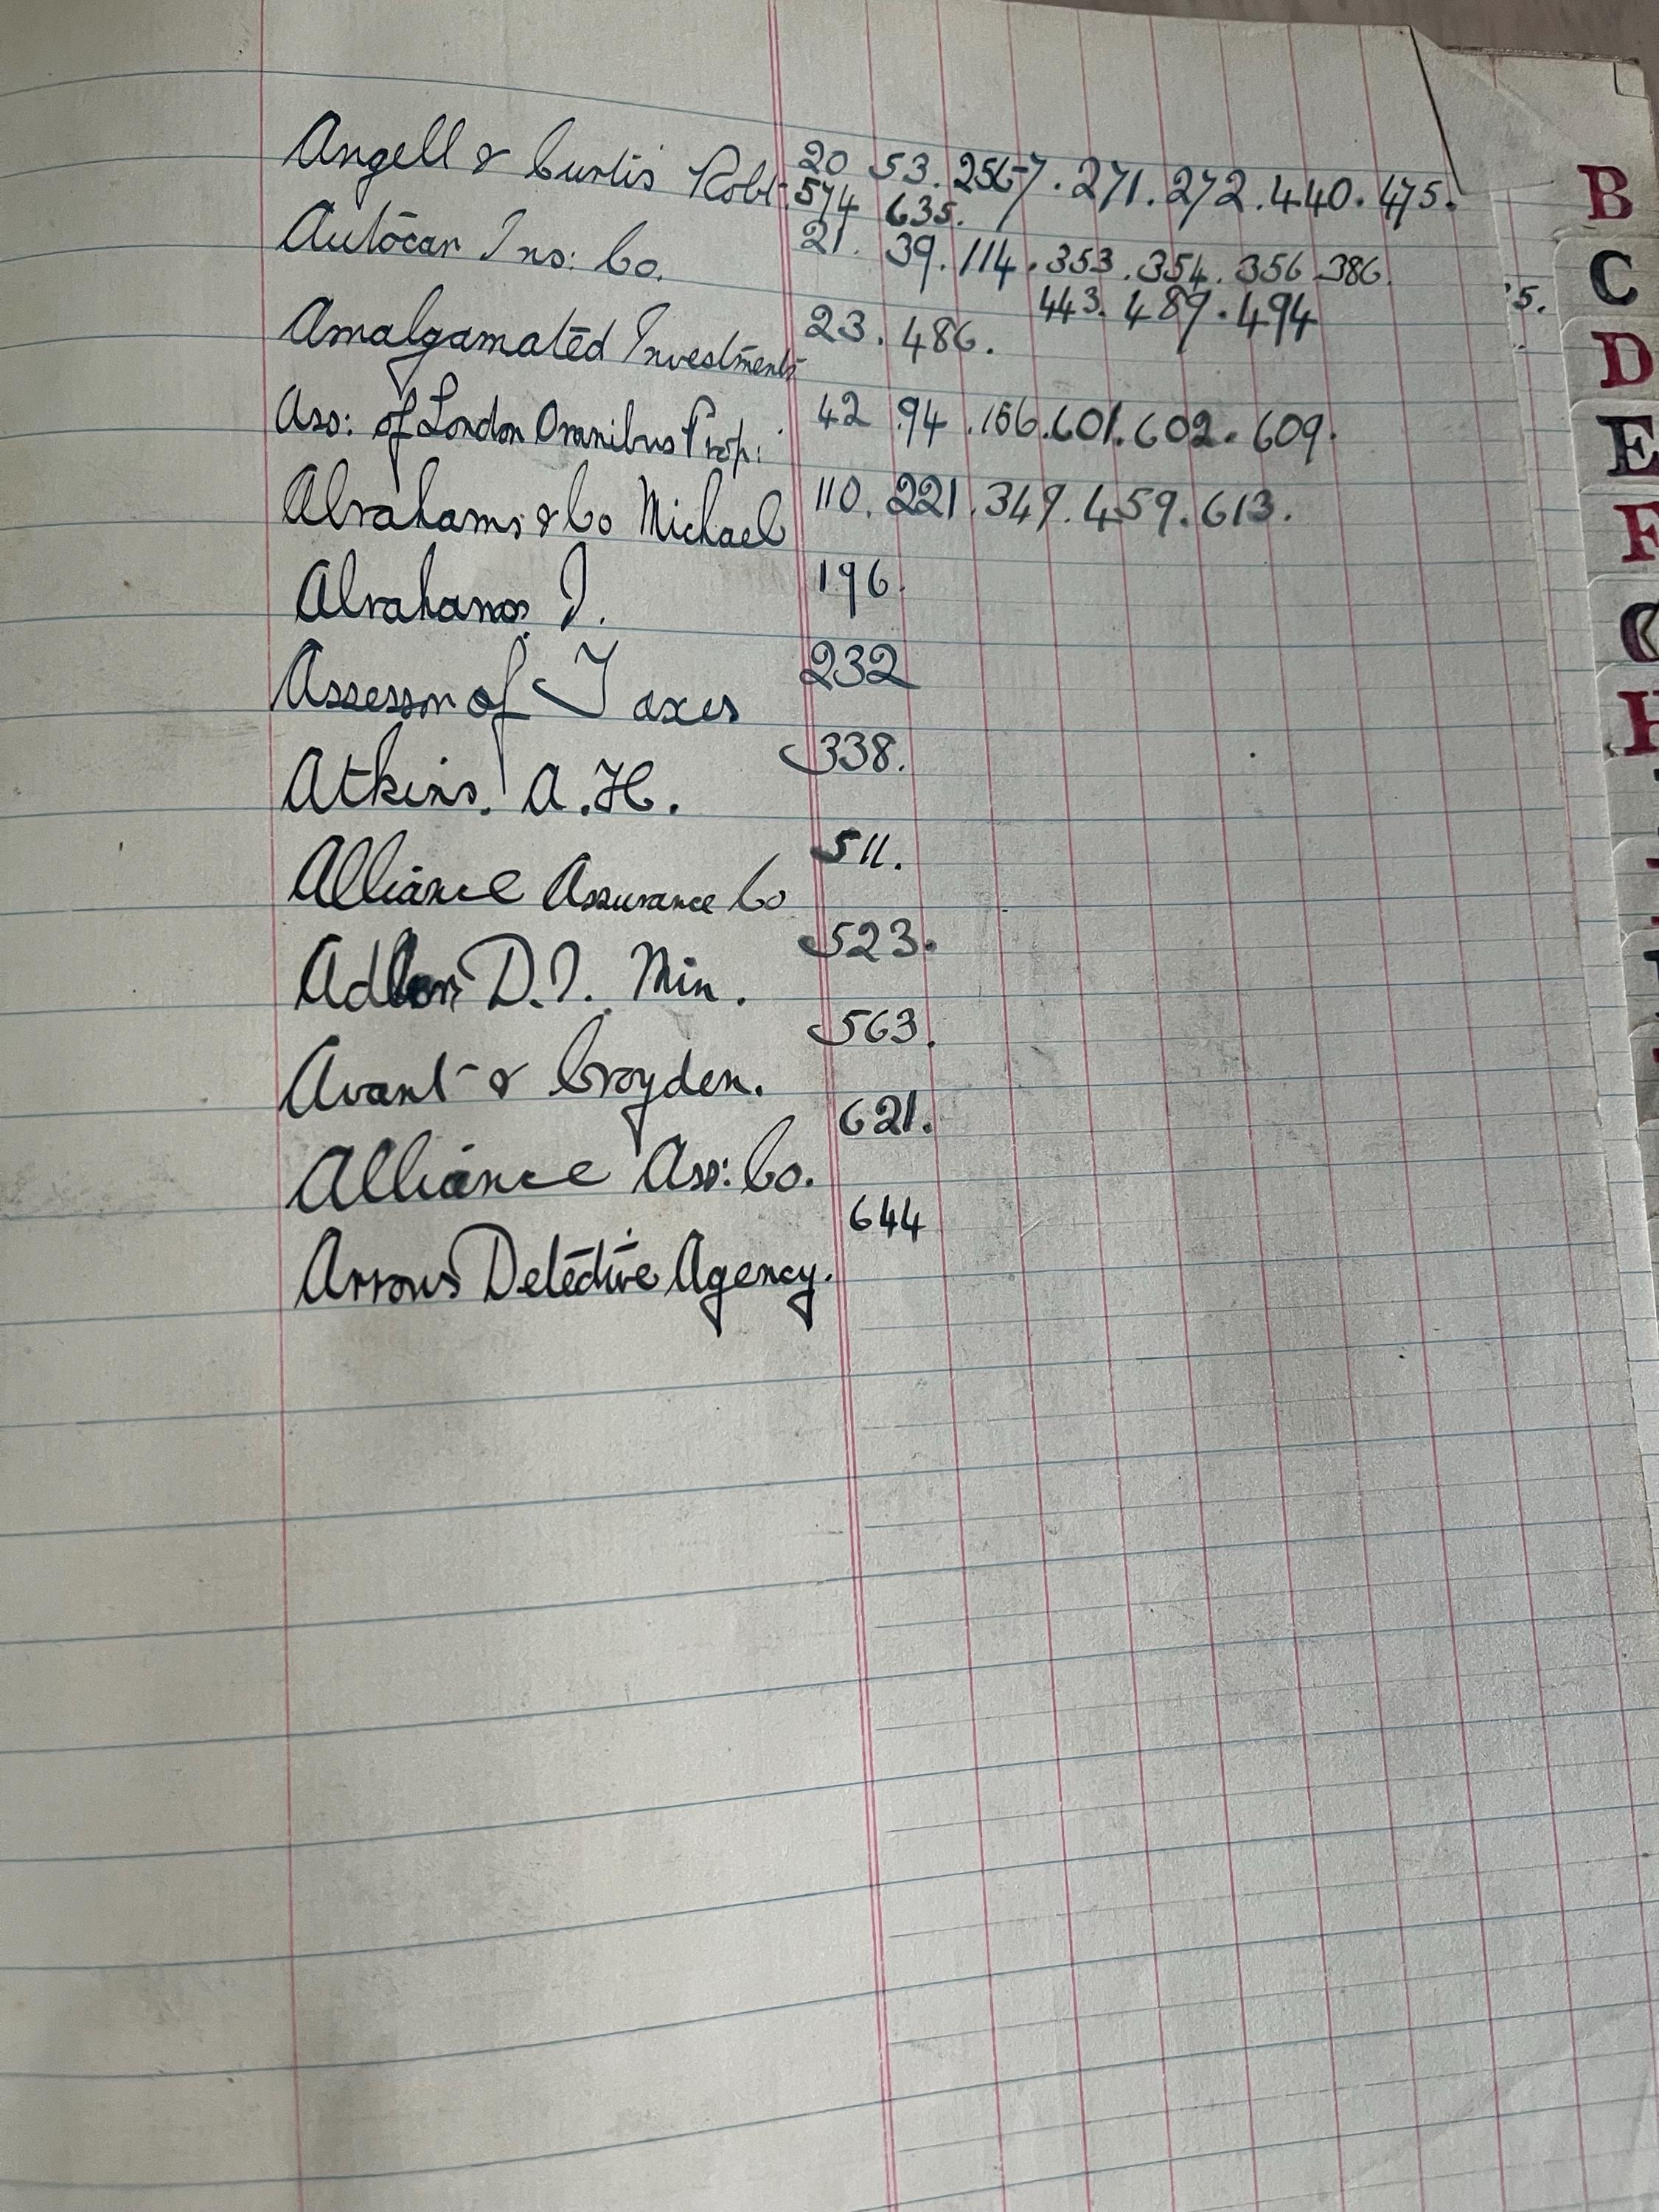 Angell & Curtis Robt: 20 53. 256-7. 271. 272. 440. 475.
574 635.
Autocar Ins: Co. 21. 39. 114. 353. 354. 356 386.
443. 489. 494
Amalgamated Investments 23. 486.
Ass: of London Omnibus Prop: 42 94. 156. 601. 602. 609.
Abrahams & Co Michael 110. 221. 349. 459. 613.
Abrahams. I. 196.
Assessor of Taxes 232
Atkins. A.H. 338.
Alliance Assurance Co 511.
D.I. Min. 523.
Avant & Croyden. 563.
Alliance Ass: Co. 621.
Arrows Detective Agency. 644
5.
B
C
D
E
F
G
H